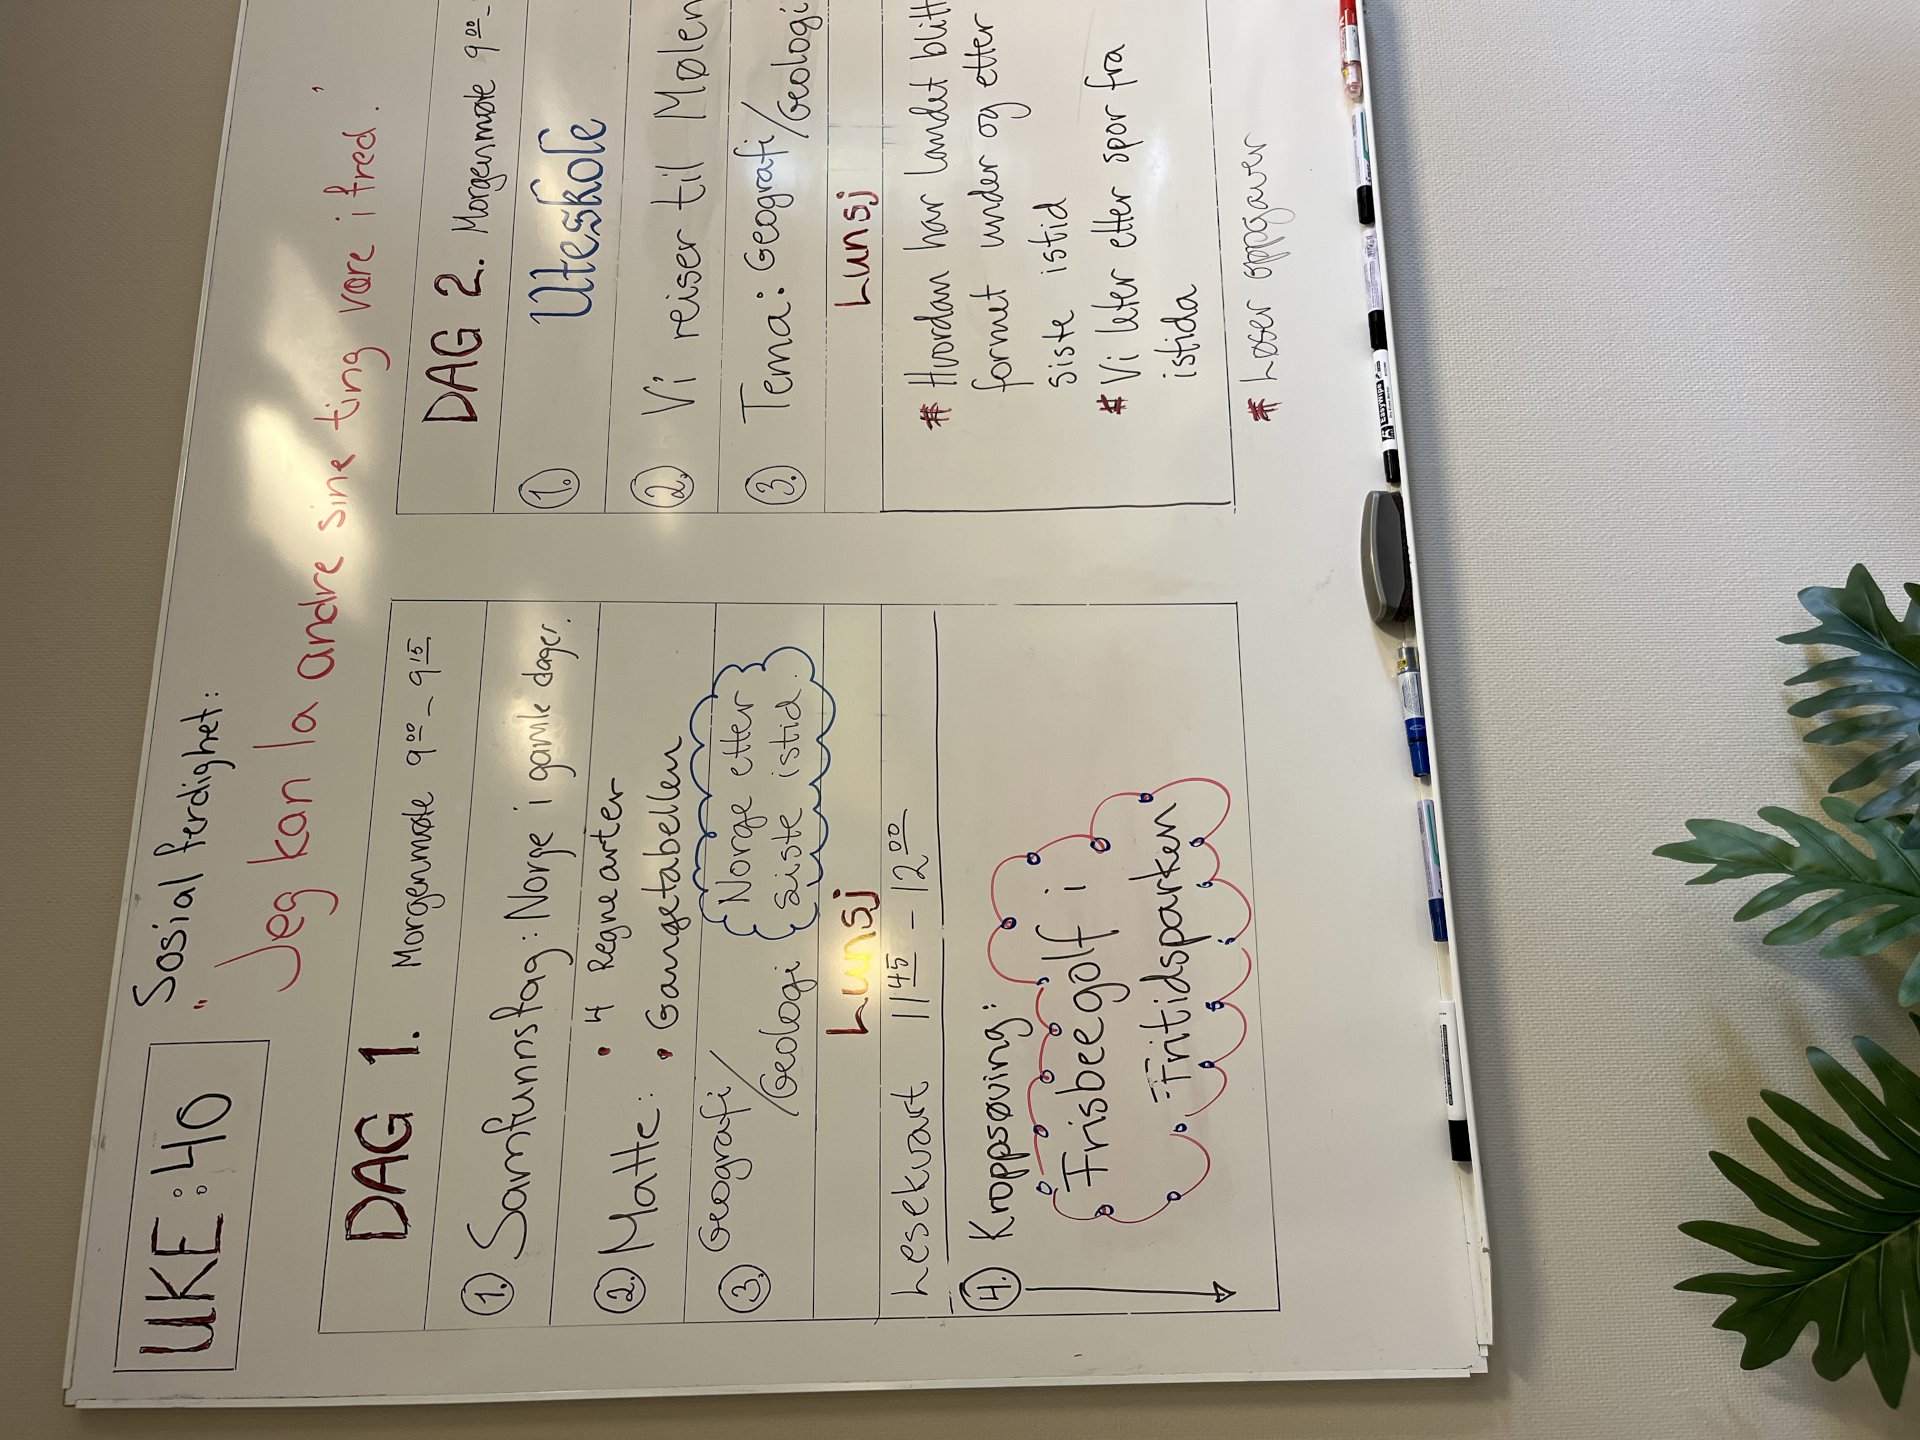 UKE:40
Sosial ferdighet:
"Jeg kan la andre sine ting være i fred."
DAG 1. Morgenmøte 9⁰⁰ - 9¹⁵
1. Samfunnsfag: Norge i gamle dager.
2. Matte: • 4 Regnearter
• Gangetabellen
3. Geografi
/Geologi
Norge etter
siste istid.
Lunsj
Lesekvart 11⁴⁵ - 12⁰⁰
4. Kroppsøving:
Frisbeegolf i
Fritidsparken
DAG 2. Morgenmøte 9⁰⁰ -
1. Uteskole
2. Vi reiser til Mølen
3. Tema: Geografi/Geologi
Lunsj
# Hvordan har landet blitt
formet under og etter
siste istid
# Vi leter etter spor fra
istida
# Løser oppgaver